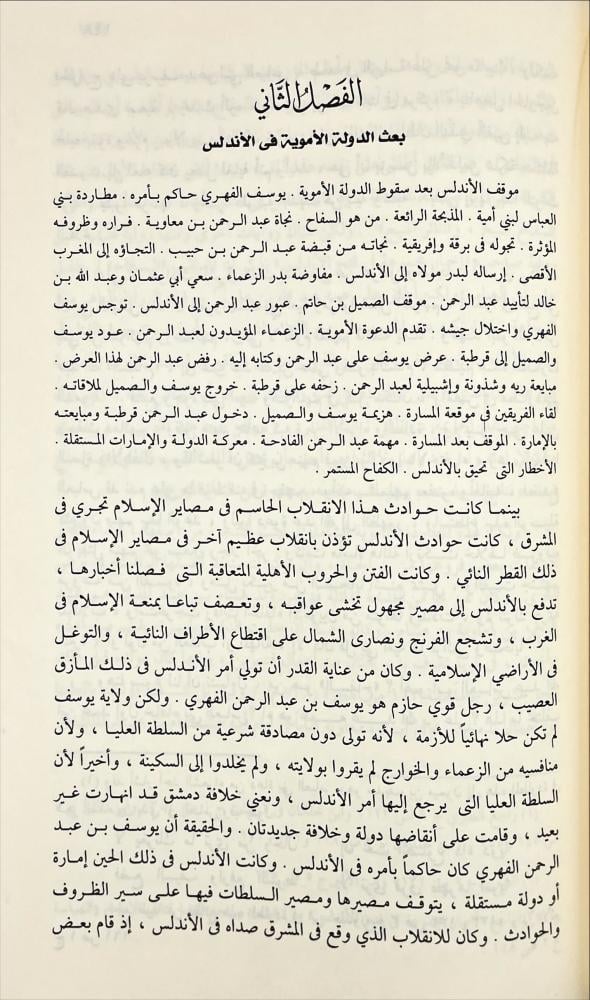 الفصل الثاني
بعث الدولة الأموية فى الأندلس
موقف الأندلس بعد سقوط الدولة الأموية . يوسف الفهري حاكم بأمره . مطاردة بني
العباس لبني أمية . المذبحة الرائعة . من هو السفاح . نجاة عبد الرحمن بن معاوية . فراره وظروفه
المؤثرة . تجوله فى برقة وإفريقية . نجاته من قبضة عبد الرحمن بن حبيب . التجاؤه إلى المغرب
الأقصى . إرساله لبدر مولاه إلى الأندلس . مفاوضة بدر الزعماء . سعي أبي عثمان وعبد الله بن
خالد لتأييد عبد الرحمن . موقف الصميل بن حاتم . عبور عبد الرحمن إلى الأندلس . توجس يوسف
الفهري واختلال جيشه . تقدم الدعوة الأموية . الزعماء المؤيدون لعبد الرحمن . عود يوسف
والصميل إلى قرطبة . عرض يوسف على عبد الرحمن وكتابه إليه . رفض عبد الرحمن لهذا العرض .
مبايعة ريه وشذونة وإشبيلية لعبد الرحمن . زحفه على قرطبة . خروج يوسف والصميل لملاقاته .
لقاء الفريقين فى موقعة المسارة . هزيمة يوسف والصميل . دخول عبد الرحمن قرطبة ومبايعته
بالإمارة . الموقف بعد المسارة . مهمة عبد الرحمن الفادحة . معركة الدولة والإمارات المستقلة .
الأخطار التى تحيق بالأندلس . الكفاح المستمر .
بينما كانت حوادث هذا الانقلاب الحاسم فى مصاير الإسلام تجري فى
المشرق ، كانت حوادث الأندلس تؤذن بانقلاب عظيم آخر فى مصاير الإسلام فى
ذلك القطر النائي . وكانت الفتن والحروب الأهلية المتعاقبة التى فصلنا أخبارها ،
تدفع بالأندلس إلى مصير مجهول تخشى عواقبه ، وتعصف تباعا بمنعة الإسلام فى
الغرب ، وتشجع الفرنج ونصارى الشمال على اقتطاع الأطراف النائية ، والتوغل
فى الأراضي الإسلامية . وكان من عناية القدر أن تولي أمر الأندلس فى ذلك المأزق
العصيب ، رجل قوي حازم هو يوسف بن عبد الرحمن الفهري . ولكن ولاية يوسف
لم تكن حلا نهائياً للأزمة ، لأنه تولى دون مصادقة شرعية من السلطة العليا ، ولأن
منافسيه من الزعماء والخوارج لم يقروا بولايته ، ولم يخلدوا إلى السكينة ، وأخيراً لأن
السلطة العليا التى يرجع إليها أمر الأندلس ، ونعني خلافة دمشق قد انهارت غير
بعيد ، وقامت على أنقاضها دولة وخلافة جديدتان . والحقيقة أن يوسف بن عبد
الرحمن الفهري كان حاكماً بأمره فى الأندلس . وكانت الأندلس فى ذلك الحين إمارة
أو دولة مستقلة ، يتوقف مصيرها ومصير السلطات فيها على سير الظروف
والحوادث . وكان للانقلاب الذي وقع فى المشرق صداه فى الأندلس ، إذ قام بعض